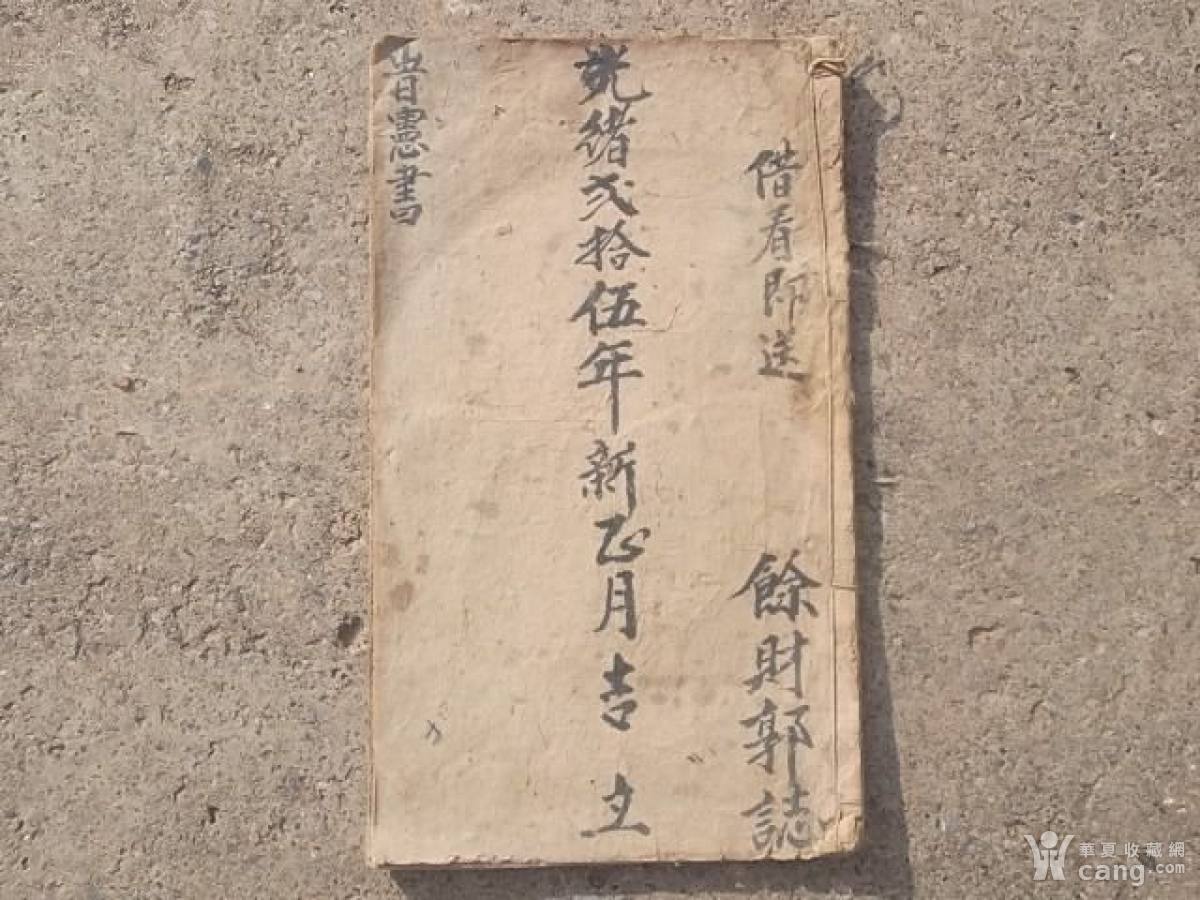 借看即送
餘財郭誌
光緒弍拾伍年新正月吉立
旹憲書
華夏收藏網
cang.com